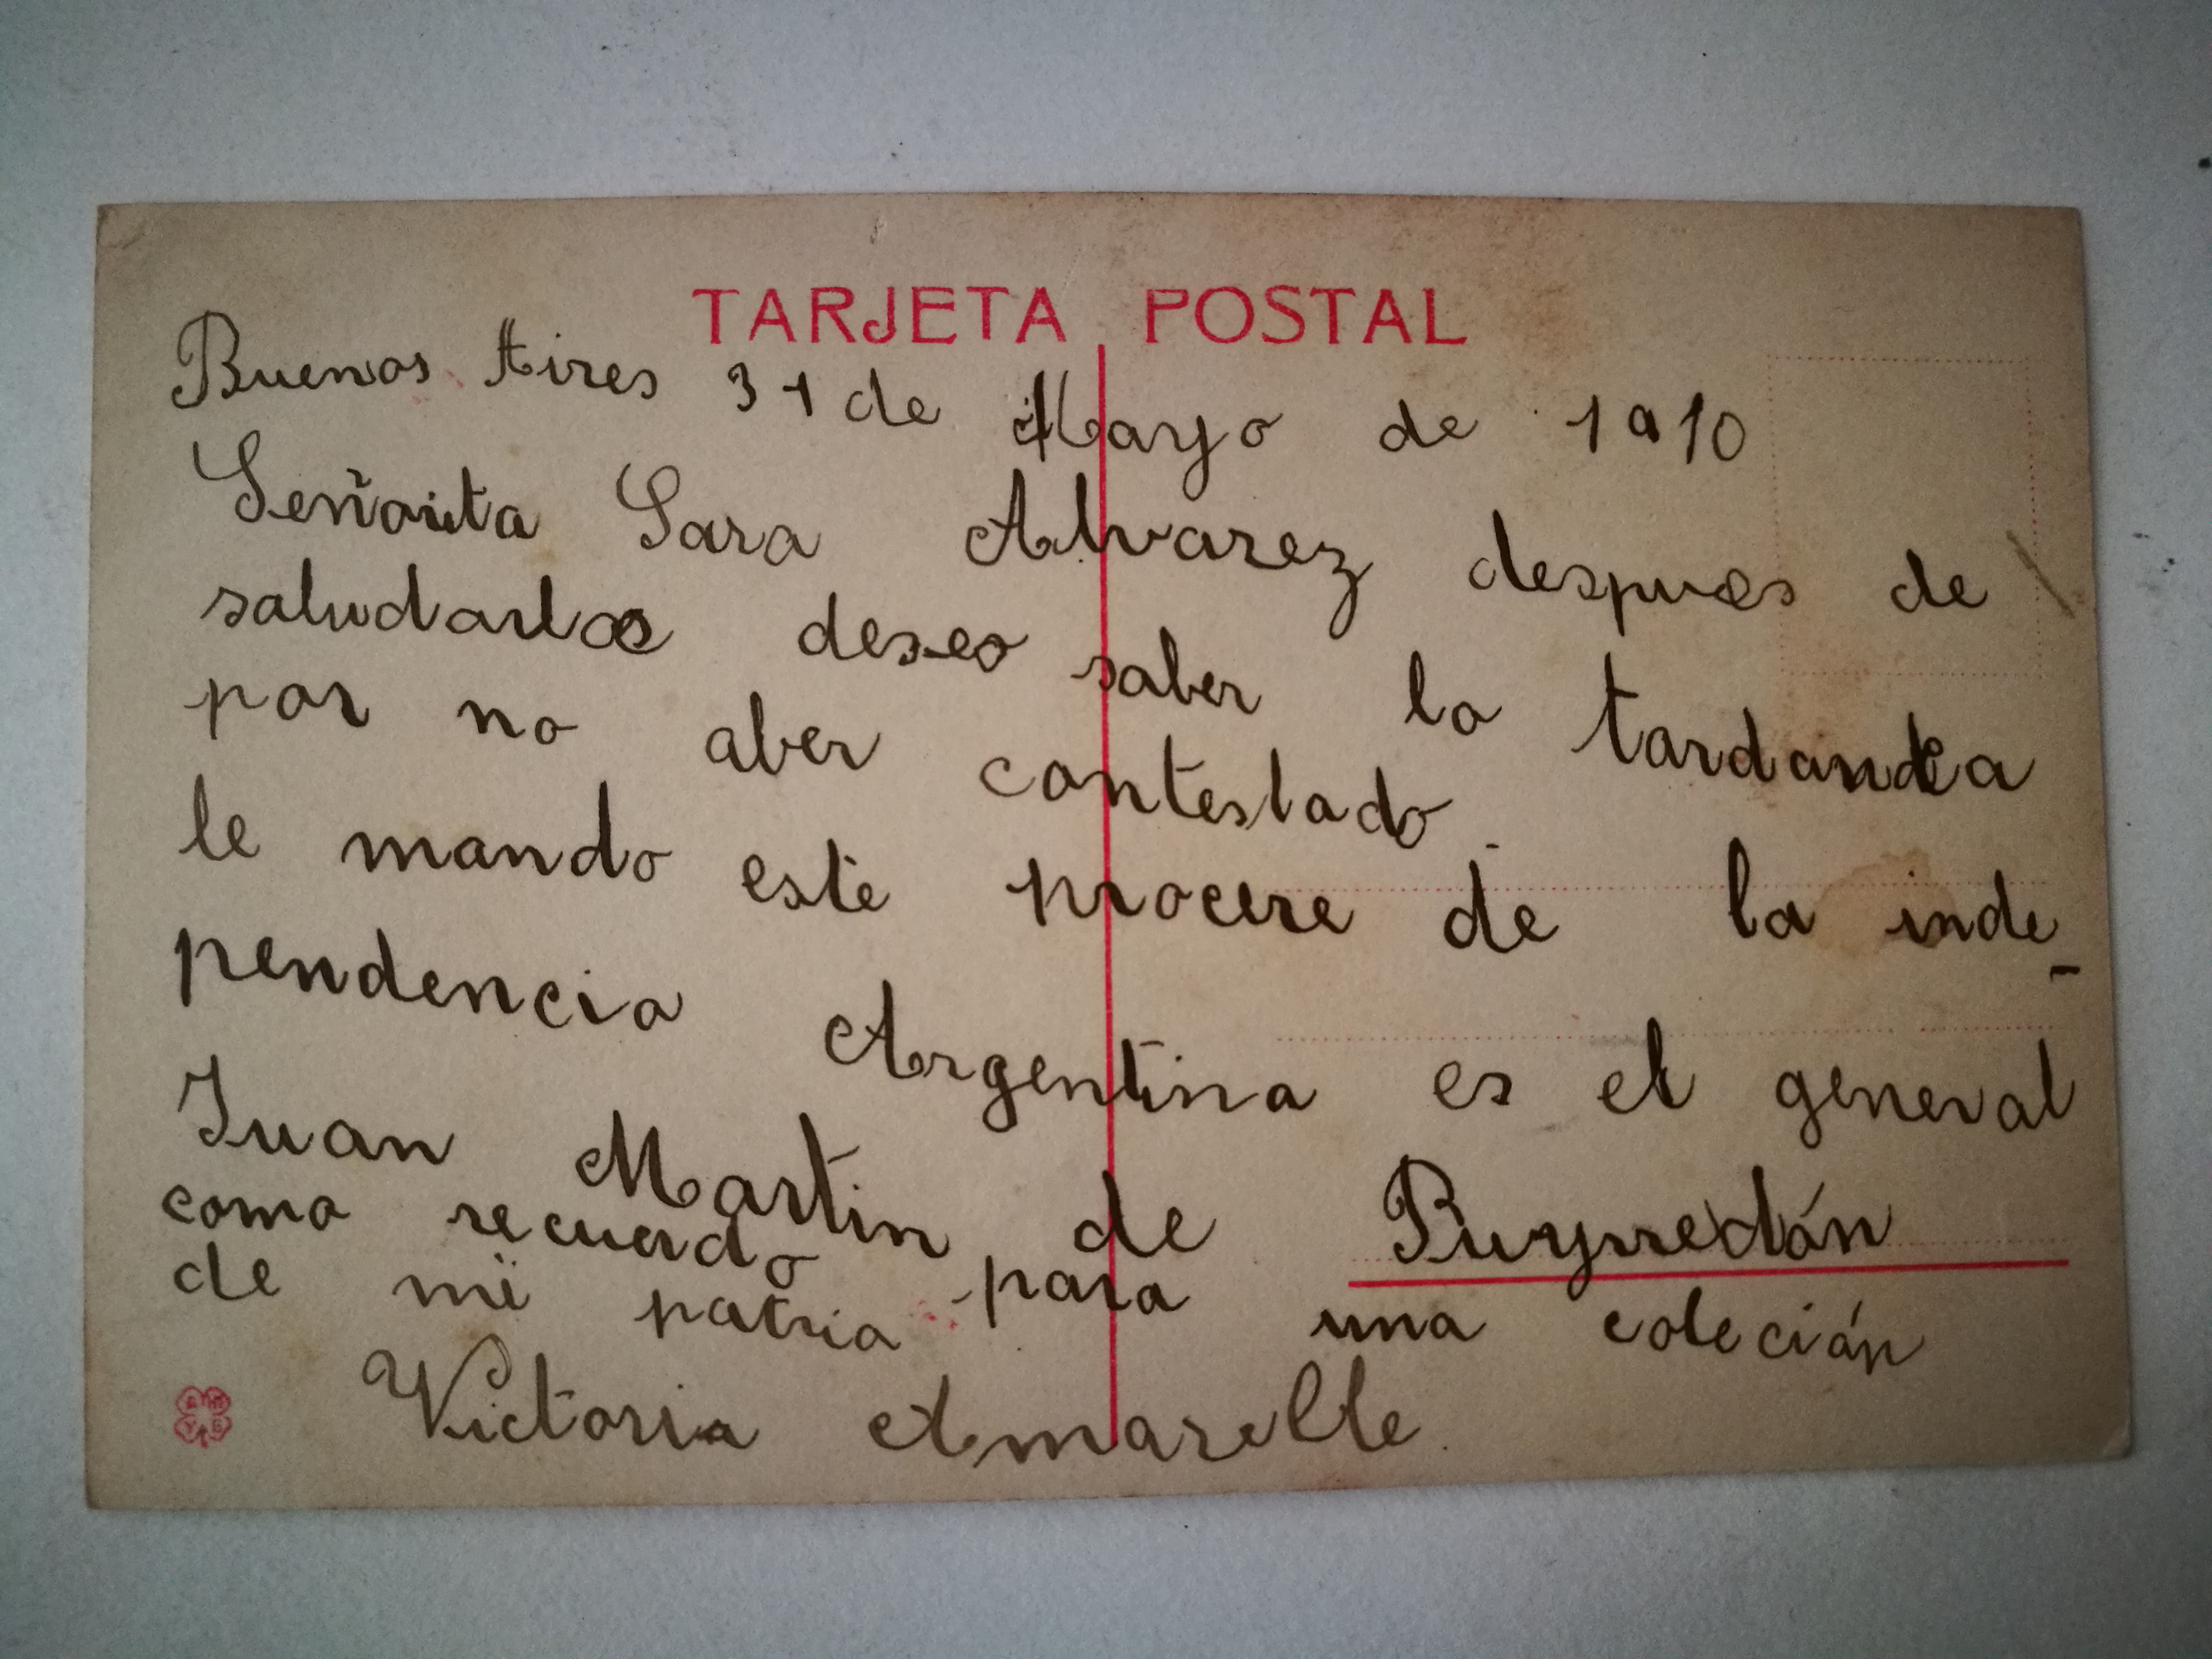 TARJETA POSTAL
Buenos Aires 31 de Mayo de 1910
Señorita Sara Alvarez despues de
saludarlos deseo saber la tardancia
por no aber contestado.
le mando este procere de la inde-
pendencia Argentina es el general
Juan Martin de Puyrredón
como recuerdo para una coleción
de mi patria
Victoria Amarelle.